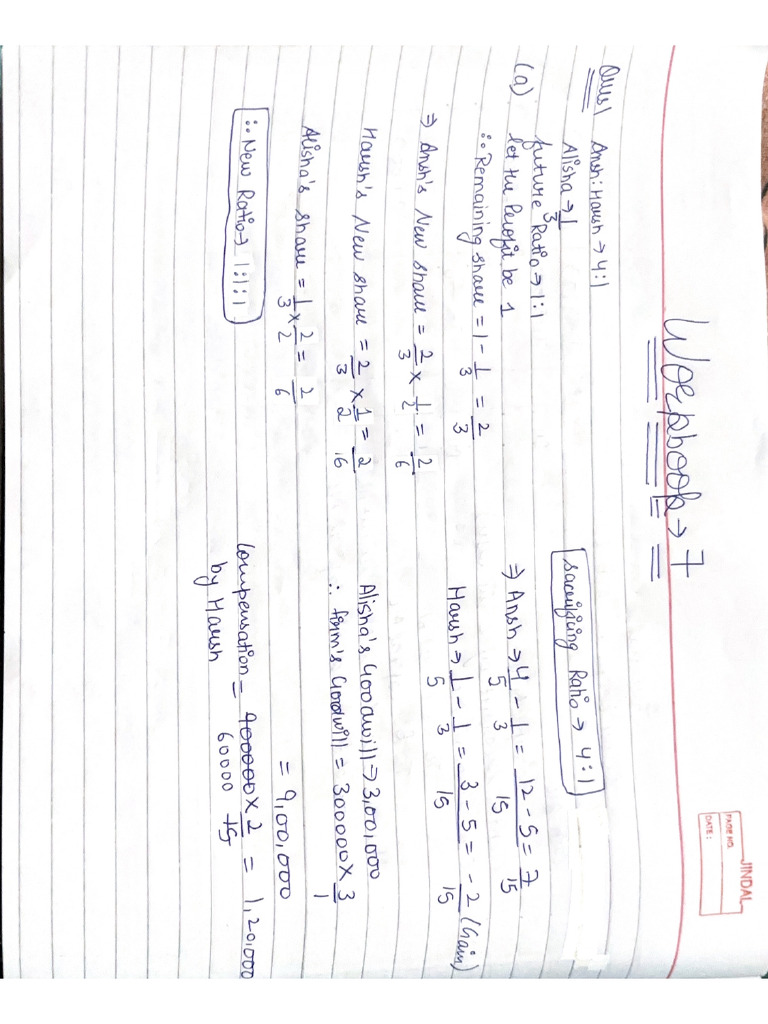 JINDAL
PAGE NO.
DATE:
Workbook → 7
Ques1 Ansh:Harsh → 4:1
Alisha → 1/3
future Ratio → 1:1
(a) let the Profit be 1
∴ Remaining share = 1 - 1/3 = 2/3
⇒ Ansh's New share = 2/3 × 1/2 = 2/6
Harsh's New share = 2/3 × 1/2 = 2/6
Alisha's share = 1/3 × 2/2 = 2/6
∴ New Ratio → 1:1:1
Sacrificing Ratio → 4:1
⇒ Ansh → 4/5 - 1/3 = 12-5/15 = 7/15
Harsh → 1/5 - 1/3 = 3-5/15 = -2/15 (Gain)
Alisha's Goodwill → 3,00,000
∴ firm's Goodwill = 300000 × 3/1
= 9,00,000
Compensation = 900000 × 2/15 = 1,20,000
by Harsh 60000